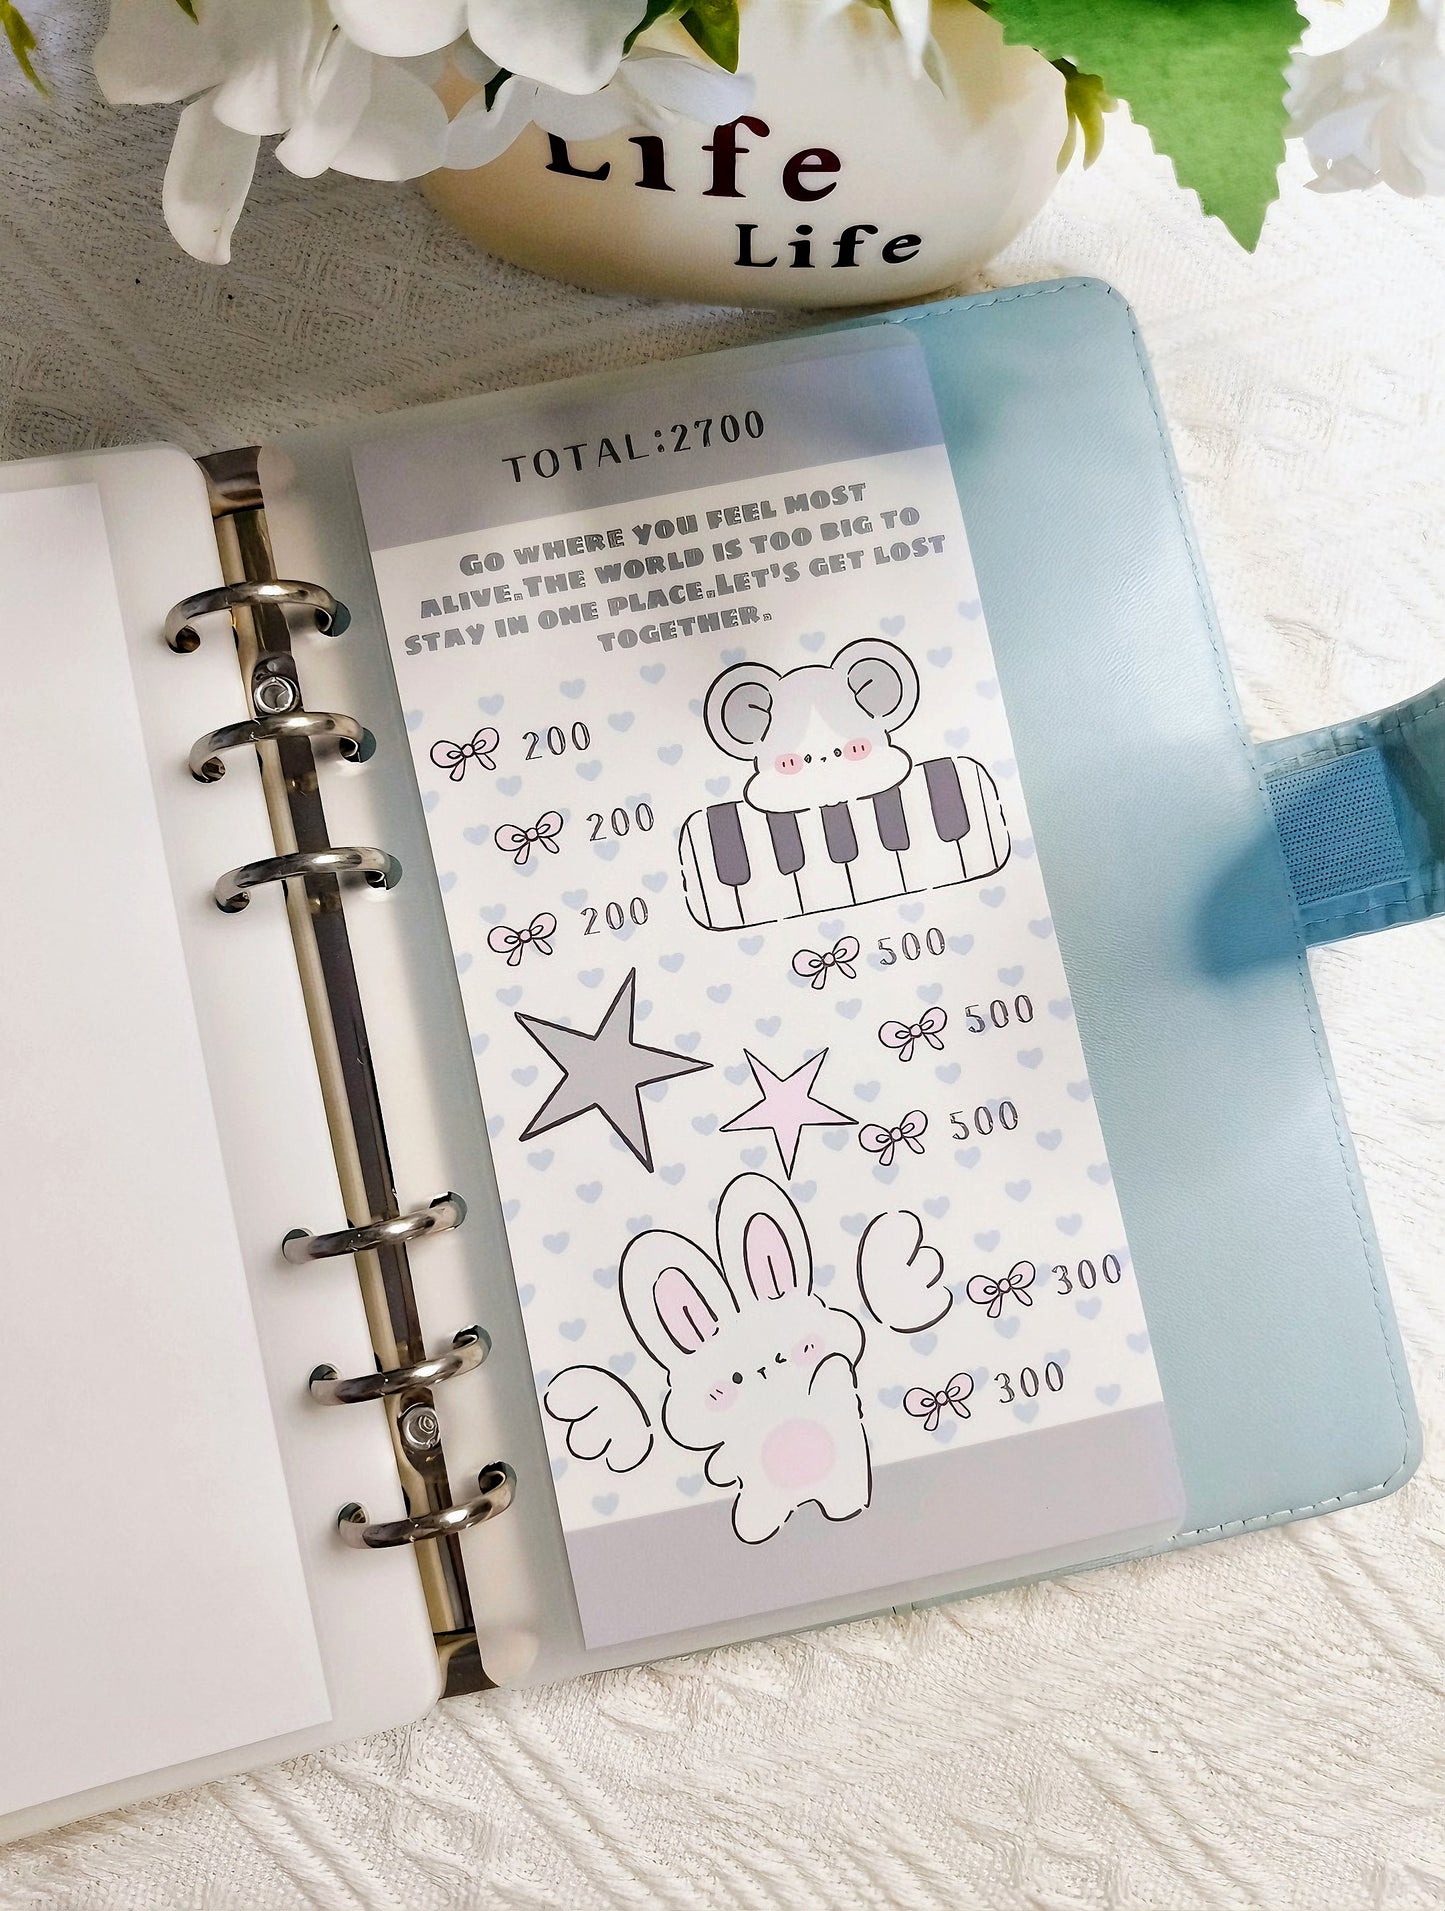 Life
Life
TOTAL:2700
GO WHERE YOU FEEL MOST
ALIVE.THE WORLD IS TOO BIG TO
STAY IN ONE PLACE.LET'S GET LOST
TOGETHER.
200
200
200
500
500
500
300
300